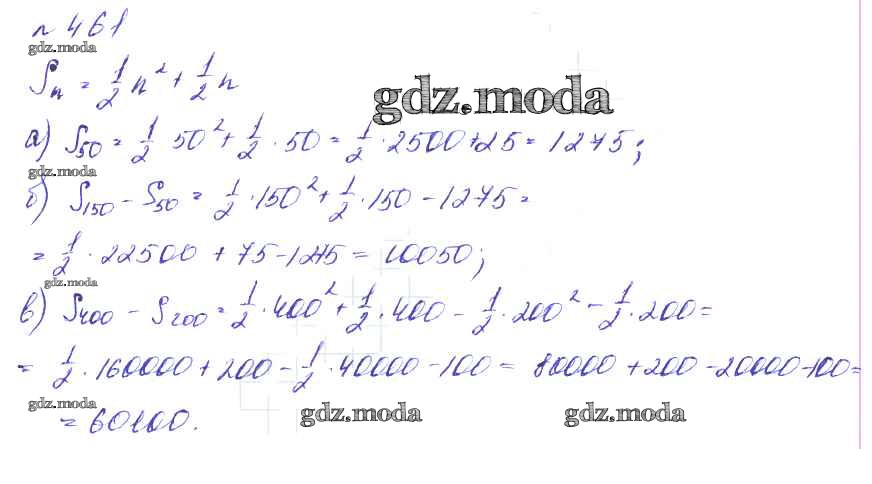 № 461
gdz.moda
Sₙ = 1/2 n² + 1/2 n
gdz.moda
а) S₅₀ = 1/2 50² + 1/2 · 50 = 1/2 · 2500 + 25 = 1275;
gdz.moda
б) S₁₅₀ - S₅₀ = 1/2 · 150² + 1/2 · 150 - 1275 =
= 1/2 · 22500 + 75 - 1275 = 10050;
gdz.moda
в) S₄₀₀ - S₂₀₀ = 1/2 · 400² + 1/2 · 400 - 1/2 · 200² - 1/2 · 200 =
= 1/2 · 160000 + 200 - 1/2 · 40000 - 100 = 80000 + 200 - 20000 - 100 =
gdz.moda
= 60100.
gdz.moda
gdz.moda